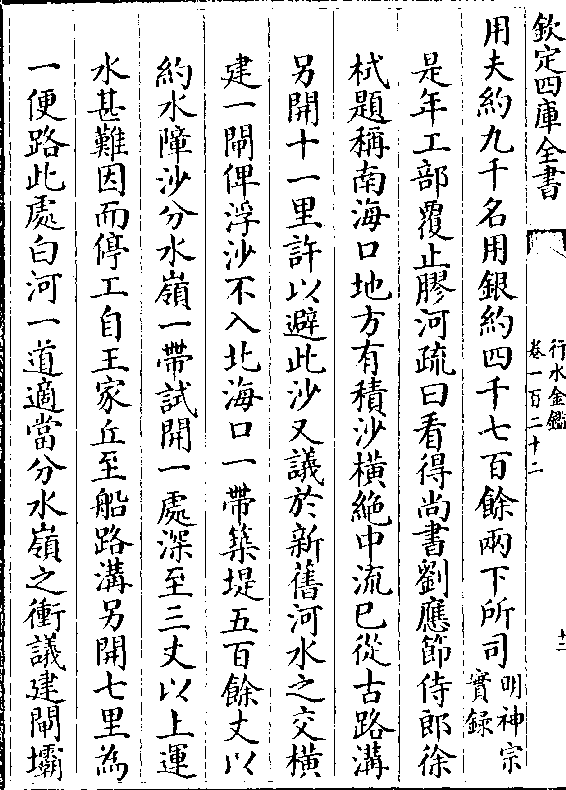 欽定四庫全書
行水金鑑
卷一百二十二
十二
用夫約九千名用銀約四千七百餘兩下所司明神宗實録
是年工部覆止膠河疏曰看得尚書劉應節侍郎徐
栻題稱南海口地方有積沙橫絶中流已從古路溝
另開十一里許以避此沙又議於新舊河水之交橫
建一閘俾浮沙不入北海口一帶築堤五百餘丈以
約水障沙分水嶺一帶試開一處深至三丈以上運
水甚難因而停工自王家丘至船路溝另開七里為
一便路此處白河一道適當分水嶺之衝議建閘壩